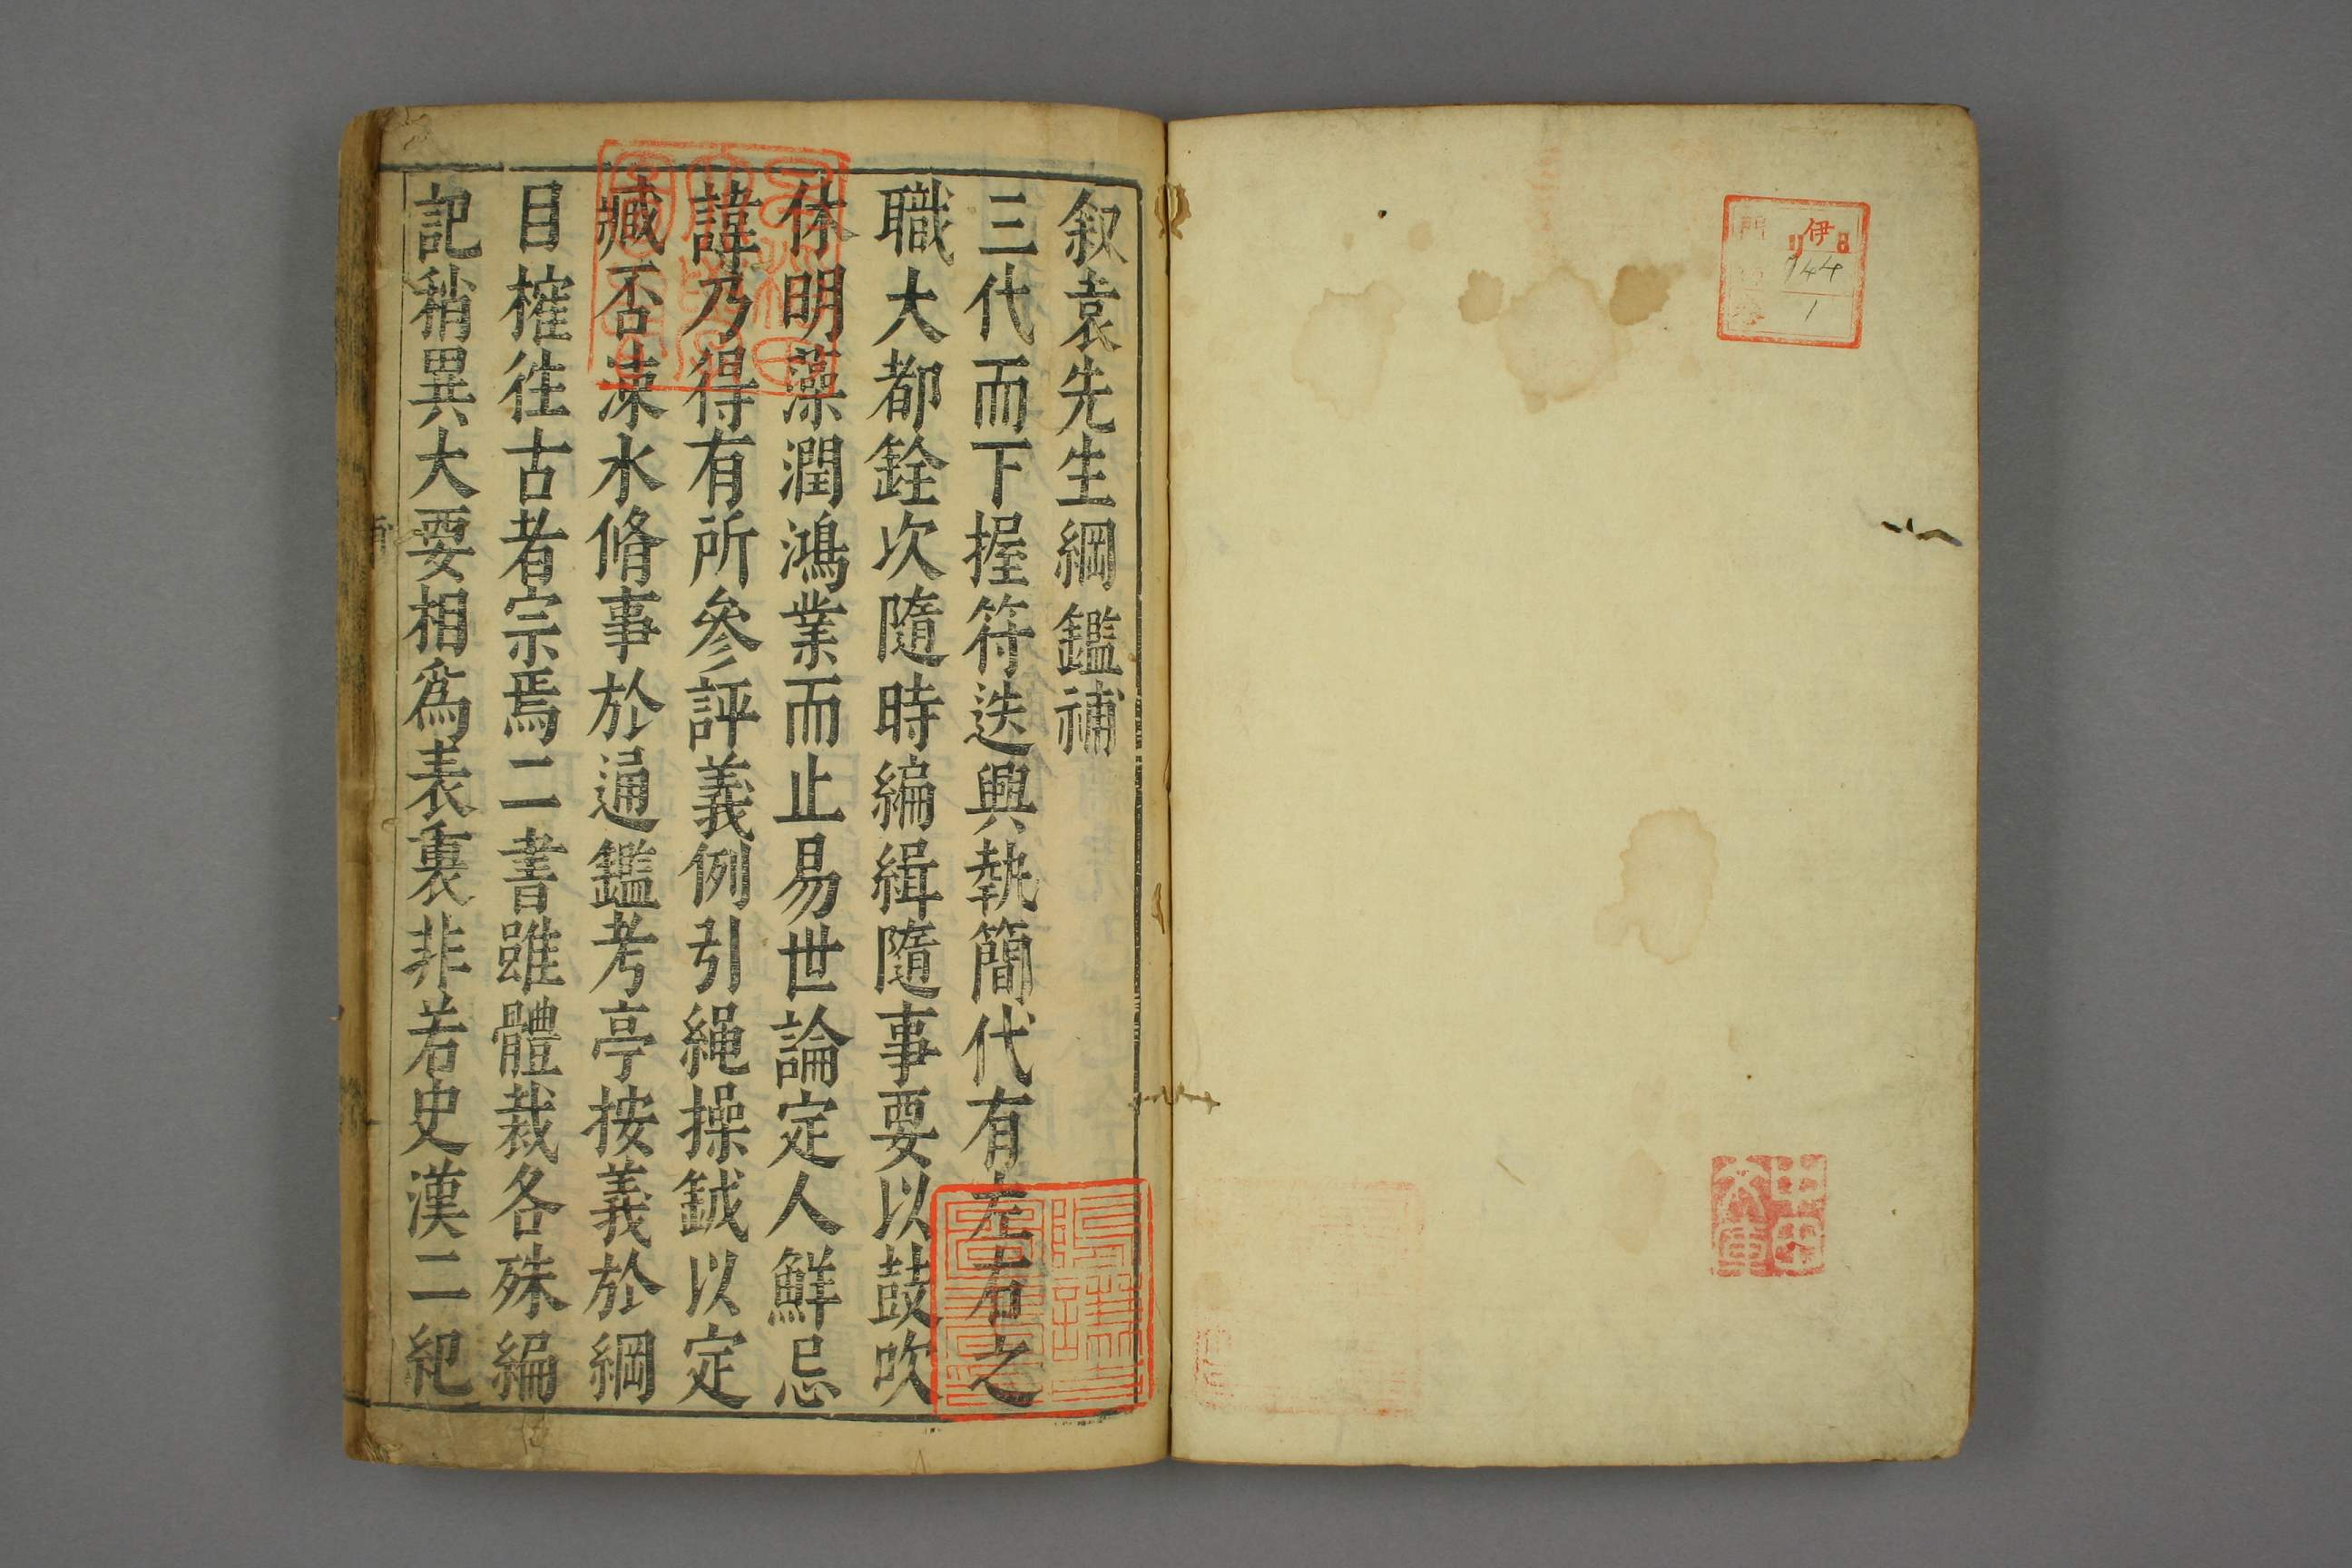 伊 8
944
1
叙袁先生綱鑑補
三代而下握符迭興執簡代有左右之
職大都銓次隨時編緝隨事要以鼓吹
休明藻潤鴻業而止易世論定人鮮忌
諱乃得有所參評義例引繩操鉞以定
臧否涑水脩事於通鑑考亭按義於綱
目榷徃古者宗焉二書雖體裁各殊編
記稍異大要相爲表裏非若史漢二紀